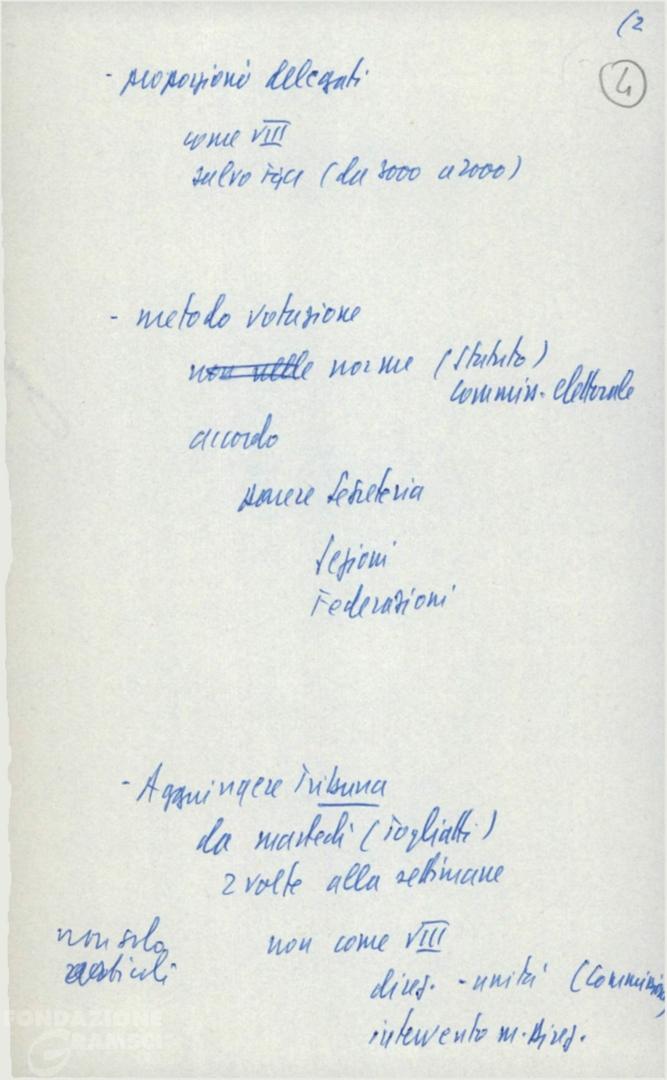 (2
4
- proporzioni delegati
come VIII
salvo FGCI (da 3000 a 2000)
- metodo votazione
non nelle norme (statuto)
commiss. elettorale
accordo
parere Segreteria
Sezioni
Federazioni
- Aggiungere Tribuna
da martedì (Togliatti)
2 volte alla settimana
non solo
articoli
non come VIII
direz. - unità (Commissione
intervento m. direz.
FONDAZIONE
GRAMSCI